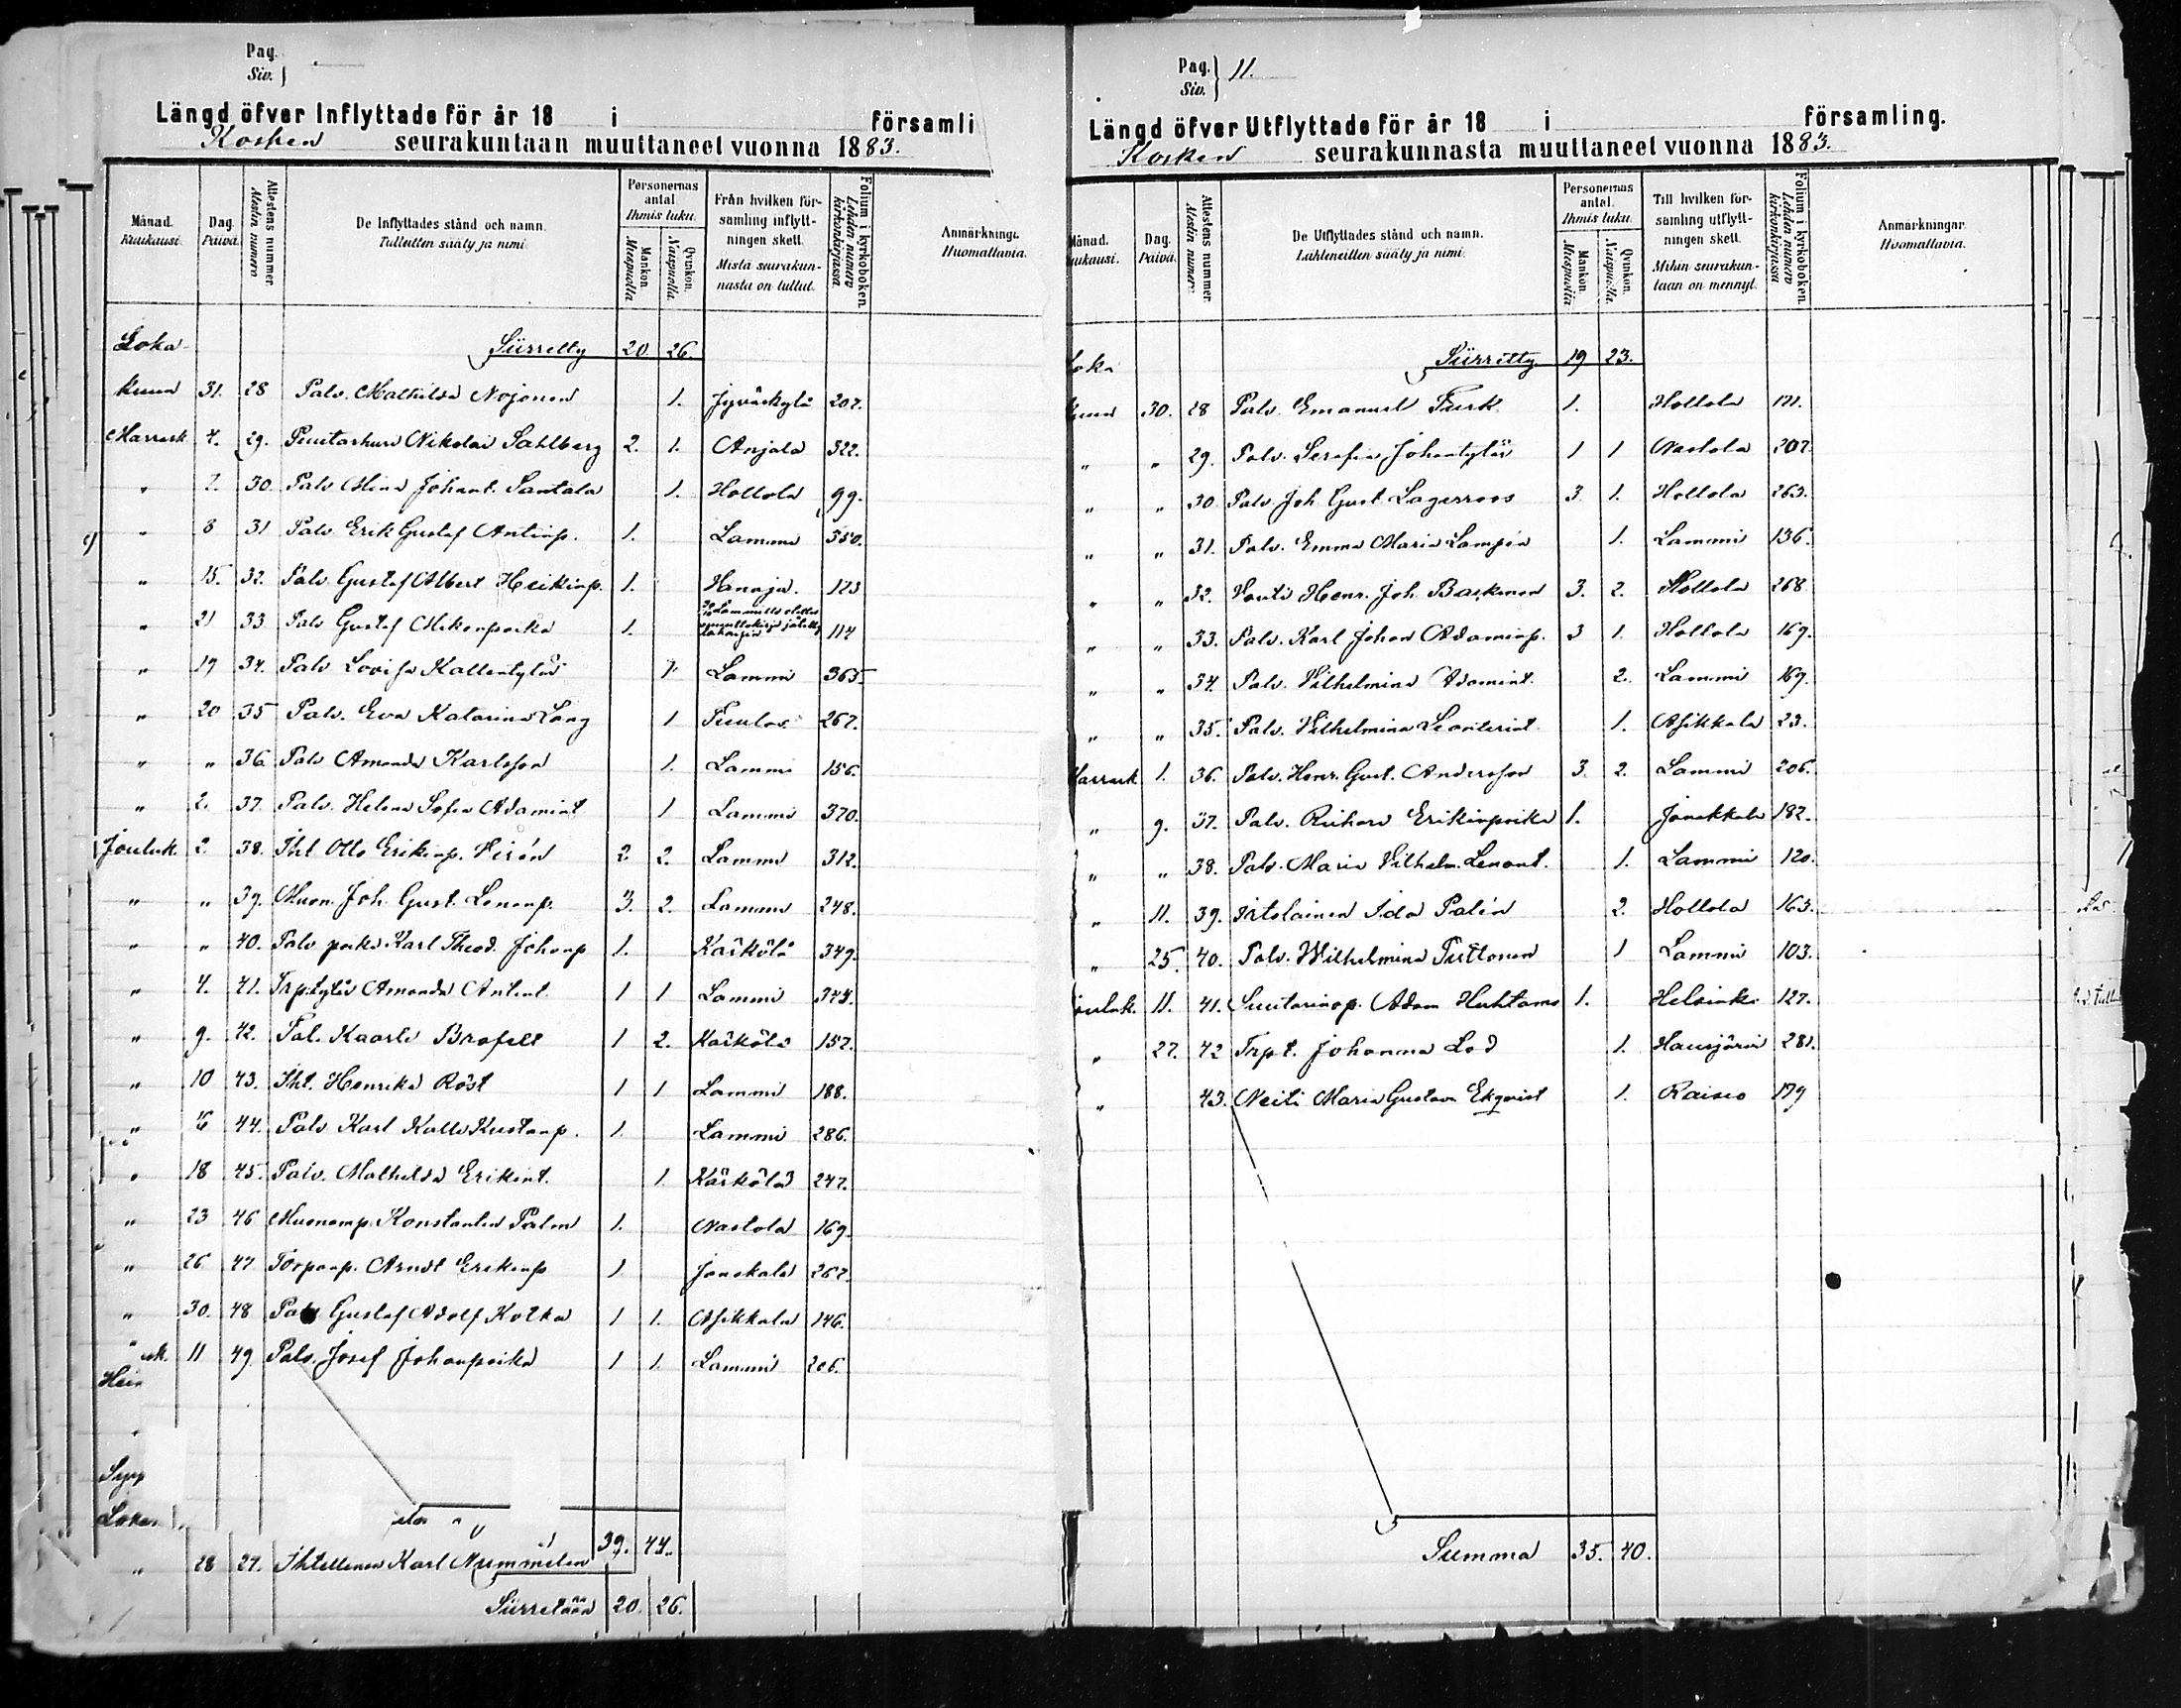 Pag. Siv.
Längd öfver Inflyttade för år 18 i församli
Kosken seurakuntaan muuttaneet vuonna 1883.
Månad. Kuukausi. Dag. Päivä. Attestens nummer. Allestin numero De Inflyttades stånd och namn. Tulleitten sääty ja nimi. Personernas antal Ihmis luku. Mankön. Miespuolia Qvinkön. Naispuolia. Från hvilken församling inflyttningen skett. Mistä seurakunnasta on tullut. Folium i kyrkoboken. Lehden numero kirkonkirjassa Anmärkninga Huomattavia.
Loka- Siirretty 20 26.
kuun 31. 28 Palv. Mathilda Nojonen 1. Jyväskylä 207.
Marrask. 4. 29. Puutarhuri Nikolai Sahlberg 2. 1. Anjala 322.
" 7. 30. Palv Miina Johant. Santala 1. Hollola 99.
" 8 31 Palv Erik Gustaf Antinp. 1. Lammi 350.
" 15. 32. Palv Gustaf Albert Heikinp. 1. Hauoja. 123
" 21 33 Palv Gustaf Mikonpoika 1. 114
" 19 34. Palv Lovisa Kallentytär 1. Lammi 365.
" 20 35 Palv. Eva Katarina Lång 1 Tuulos 267.
" " 36. Palv Amanda Karlsson 1. Lammi 156.
" 2. 37. Palv. Helena Sofia Adamint 1 Lammi 370.
Jouluk. 2 38. Iht Otto Erikinp. Virén 2 2. Lammi 312.
" " 39. Muon. Joh. Gust. Lenanp. 3. 2. Lammi 248.
" " 40. Palv poika Karl Theod. Johanp 1. Kärkölä 349.
" 4. 41. Trp.tytär Amanda Antint. 1 1 Lammi 344.
" 9. 42. Pal. Kaarle Brofelt 1 2. Kärkölä 157.
" 10 43. Iht. Henrika Röst 1 1 Lammi 188.
" 16 44. Palv Karl Kalle Kustaap. 1. Lammi 286.
" 18 45. Palv. Mathilda Erikint. 1 Kärkölä 247.
" 23 46 Muonamp. Konstantin Palm 1. Nastola 169.
" 26 47 Torparip. Arndt Erikinp 1. Janakala 267.
" 30. 48 Palv Gustaf Adolf Kotka 1 1. Asikkala 146.
" 11 49 Palv. Josef Johanpoika 1 1. Lammi 206.
Hei
Syy
Loka
39. 44.
" 28 27. Ihtellinen Karl Nummelin
Siirretään 20. 26.
Pag. Siv. 11.
Längd öfver Utflyttade för år 18 i församling.
Kosken seurakunnasta muuttaneet vuonna 1883.
Månad. ukausi. Dag. Päivä. Attestens nummer. Allestin numero De Utflyttades stånd och namn. Lähteneitten sääty ja nimi. Personernas antal. Ihmis luku. Mankön. Miespuolia Qvinkön. Naispuolia. Till hvilken församling utflyttningen skett. Mihin seurakuntaan on mennyt. Folium i kyrkoboken. Lehden numero kirkonkirjassa Anmärkningar. Huomattavia.
oka Siirretty 19 23.
kuun 30. 28 Palv Emanuel Turk 1. Hollola 171.
" " 29. Palv. Serafia Johantytär 1 1 Nastola 207.
" " 30 Palv Joh Gust Lagerroos 3. 1. Hollola 263.
" " 31. Palv. Emma Maria Lampén 1. Lammi 136.
" " 32. Vouti Henr. Joh. Backman 3. 2. Hollola 268.
" " 33. Palv. Karl Johan Adaminp. 3 1. Hollola 169.
" " 34. Palv. Vilhelmina Adamint. 2. Lammi 169.
" " 35. Palv. Vilhelmina Leanterint. 1. Asikkala 23.
Marrask. 1. 36. Palv. Henr. Gust. Andersson 3. 2. Lammi 206.
" 9. 37. Palv. Richard Erikinpoika 1. Janakkala 182.
" " 38. Palv. Maria Vilhelm. Lenant. 1. Lammi 120.
" 11. 39. Irtolainen Ida Palén 2. Hollola 163.
" 25. 40. Palv. Wilhelmina Tuittonen 1 Lammi 103.
ouluk. 11. 41. Suutarinop. Adam Huhtamo 1. Helsinki 127.
" 27. 42 Trp.t. Johanna Lod 1. Hausjärvi 281.
" 43. Neiti Maria Gustava Ekqvist 1. Raisio 179
Summa 35. 40.